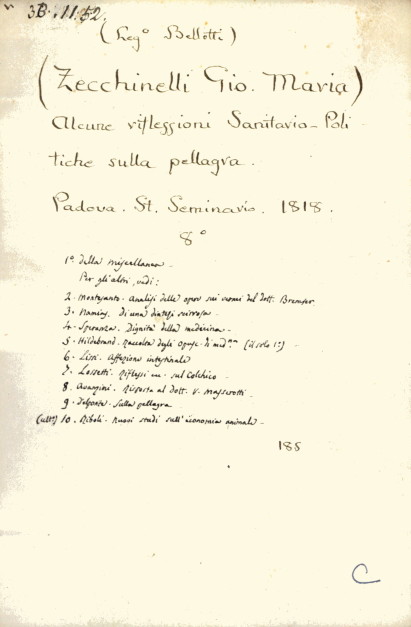 3B. 11.52.
(Leg° Bellotti)
(Zecchinelli Gio. Maria)
Alcune riflessioni Sanitario-Poli
tiche sulla pellagra.
Padova. St. Seminario. 1818.
8°
1° della miscellanea.
Per gli altri, vedi:
2. Montesanto. Analisi delle oper sui vermi del dott. Bremser
3. Di una diatesi
4. Speranza. Dignità della medicina.
5. Hildenbrand. Raccolta degli Opusc. (il solo 1°)
6. Lissi. Affezione intestinale
7. Lossetti. Riflessi sul Colchico
8. Avanzini. Risposta al dott. V. Masserotti
9. Delponte. Sulla pellagra
(ult°) 10. Riboli. Nuovi studi sull'economia animale.
185
C